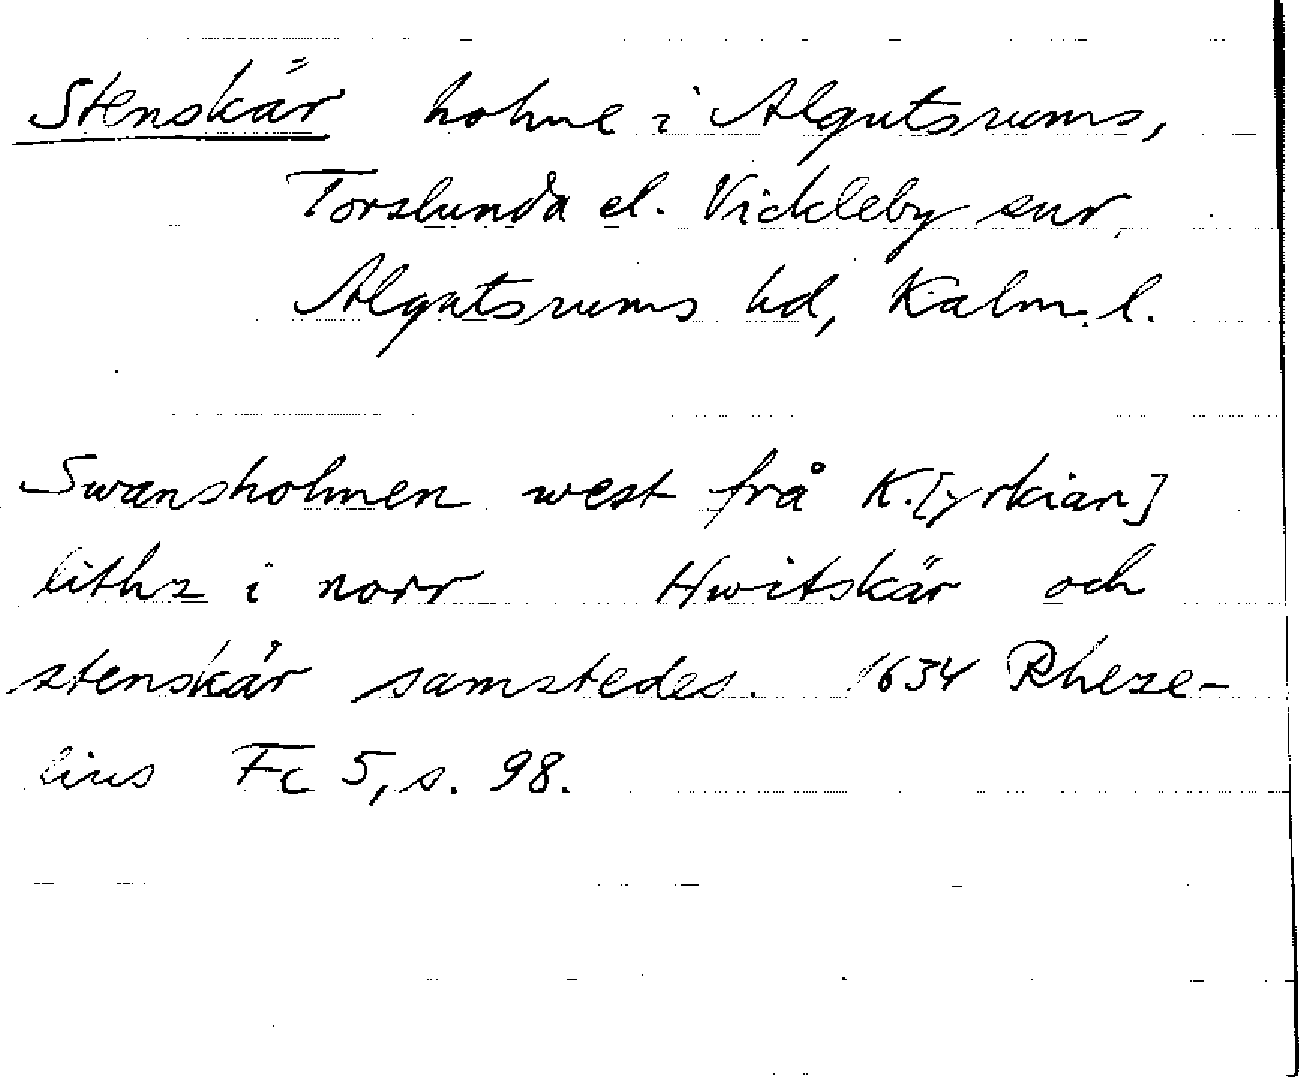 Stenskär holme i Algutsrums,
Torslunda el. Vickleby snr,
Algutsrums hd, Kalm. l.
Swansholmen west frå K.[yrkian]
lithz i norr Hwitskär och
stenskär samstedes. 1634 Rheze-
lius Fc 5, s. 98.